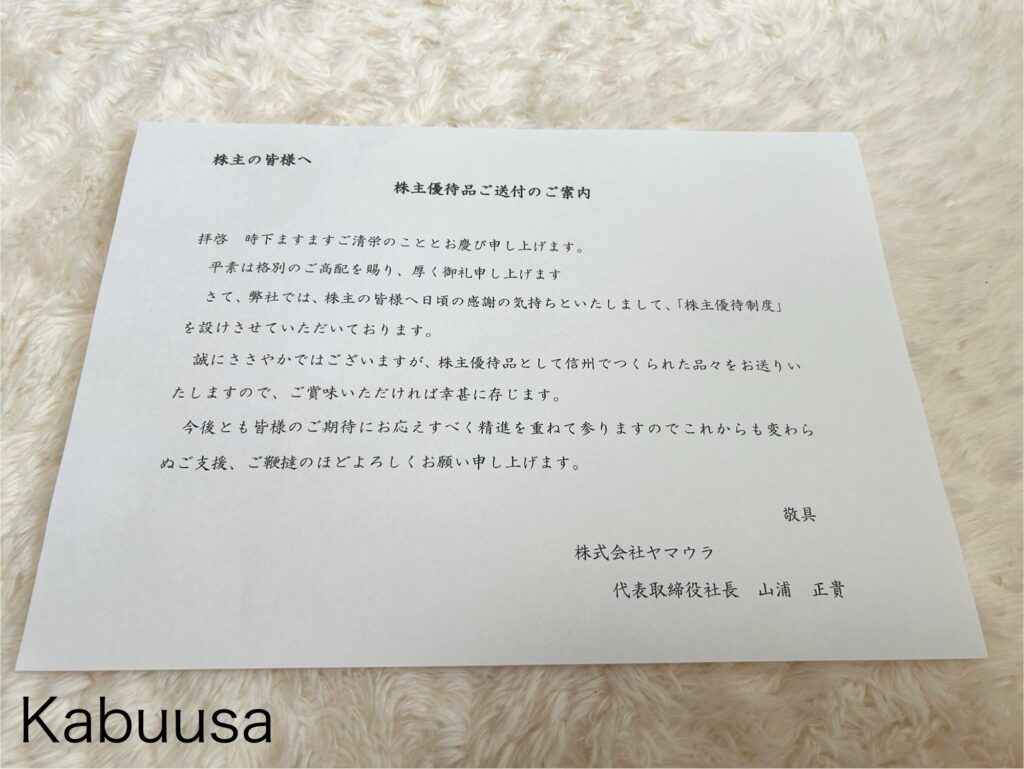 株主の皆様へ
株主優待品ご送付のご案内
拝啓　時下ますますご清栄のこととお慶び申し上げます。
平素は格別のご高配を賜り、厚く御礼申し上げます
さて、弊社では、株主の皆様へ日頃の感謝の気持ちといたしまして、「株主優待制度」
を設けさせていただいております。
誠にささやかではございますが、株主優待品として信州でつくられた品々をお送りい
たしますので、ご賞味いただければ幸甚に存じます。
今後とも皆様のご期待にお応えすべく精進を重ねて参りますのでこれからも変わら
ぬご支援、ご鞭撻のほどよろしくお願い申し上げます。
敬具
株式会社ヤマウラ
代表取締役社長　山浦　正貴
Kabuusa